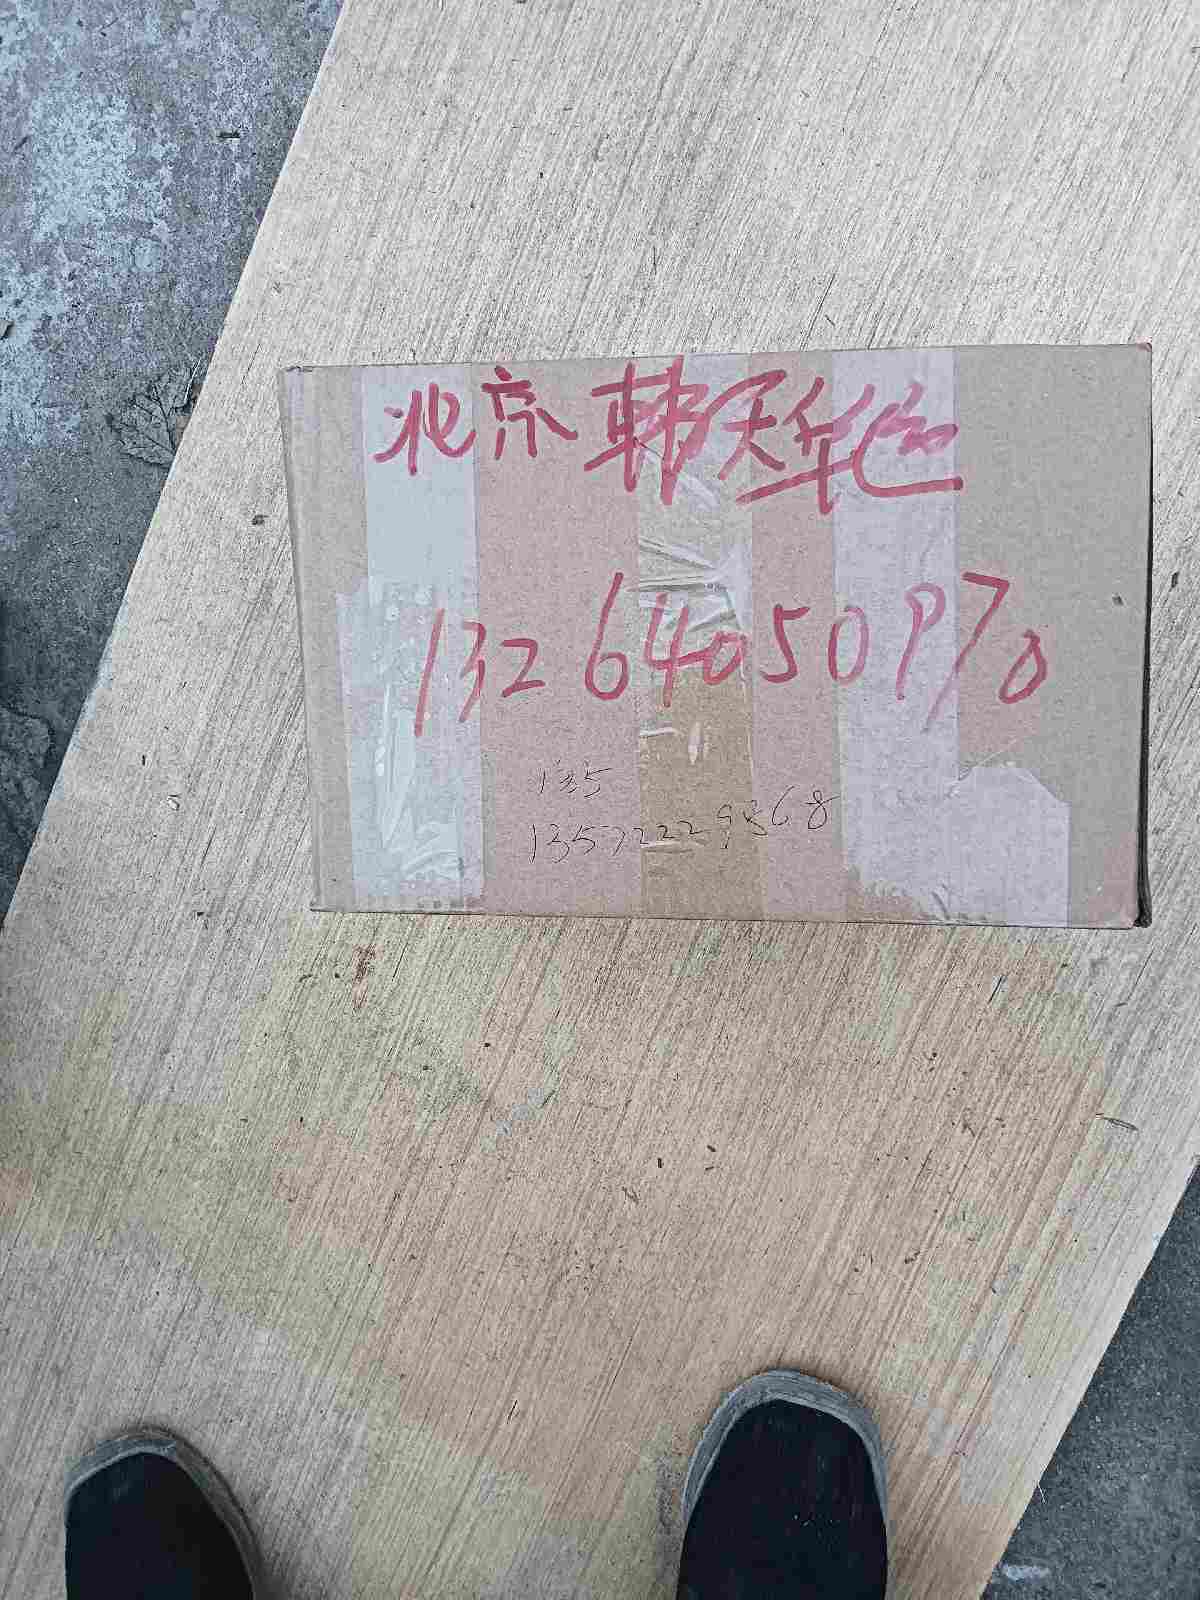 北京 韩天华包
13264050970
135
13572229568